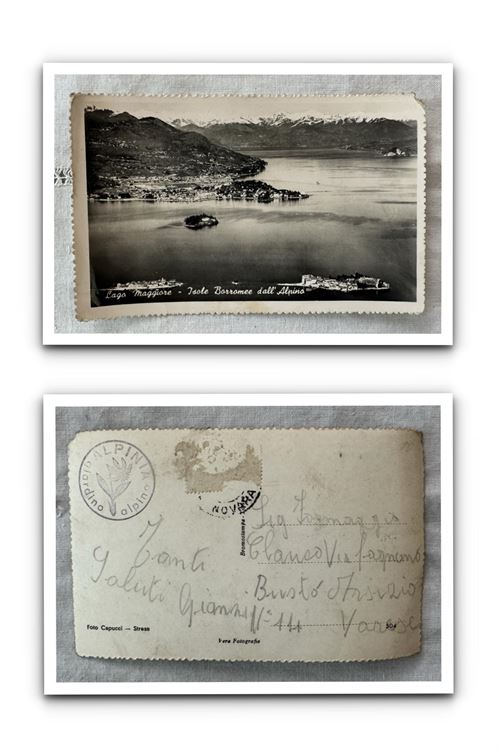 Lago Maggiore - Isole Borromee dall'Alpino
ALPINIA
giardino alpino
NOVARA
Tanti
Saluti Gianni
Sig Formaggio
Clauso Via Cagnano
Busto Arsizio
N° 44
Varese
Bromostampa
Foto Capucci — Stresa
Vera Fotografia
504